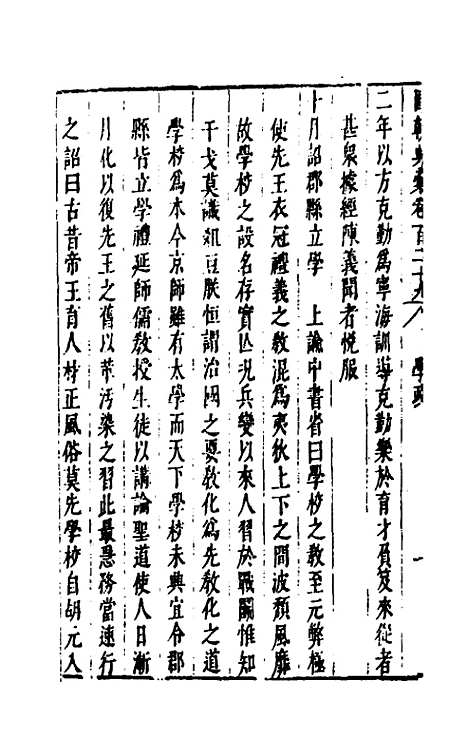 國朝典彙卷百二十九 學政 一
二年以方克勤為寧海訓導克勤樂於育才負笈來從者
甚眾據經陳義聞者悅服
十月詔郡縣立學 上諭中書省曰學校之教至元弊極
使先王衣冠禮義之教混為夷狄上下之間波頹風靡
故學校之設名存實亡况兵變以來人習於戰鬬惟知
干戈莫識俎豆朕恒謂治國之要教化為先教化之道
學校為本今京師雖有太學而天下學校未興宜令郡
縣皆立學禮延師儒教授生徒以講論聖道使人日漸
月化以復先王之舊以革汚染之習此最急務當速行
之詔曰古昔帝王育人材正風俗莫先學校自胡元入